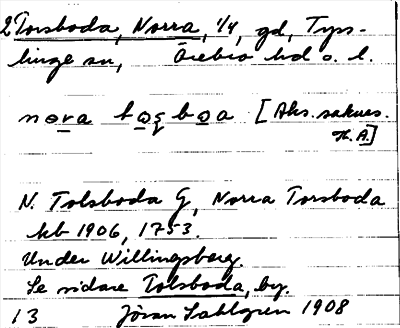 2 Torsboda, Norra, 1/4, gd, Tyss-
linge sn, Örebro hd o. l.
nora tosboa [Aks. saknas.
H.A]
N. Tolsboda G, Norra Torsboda
kb 1906, 1753.
Under Willingsberg.
Se vidare Tolsboda, by.
13 Jöran Sahlgren 1908